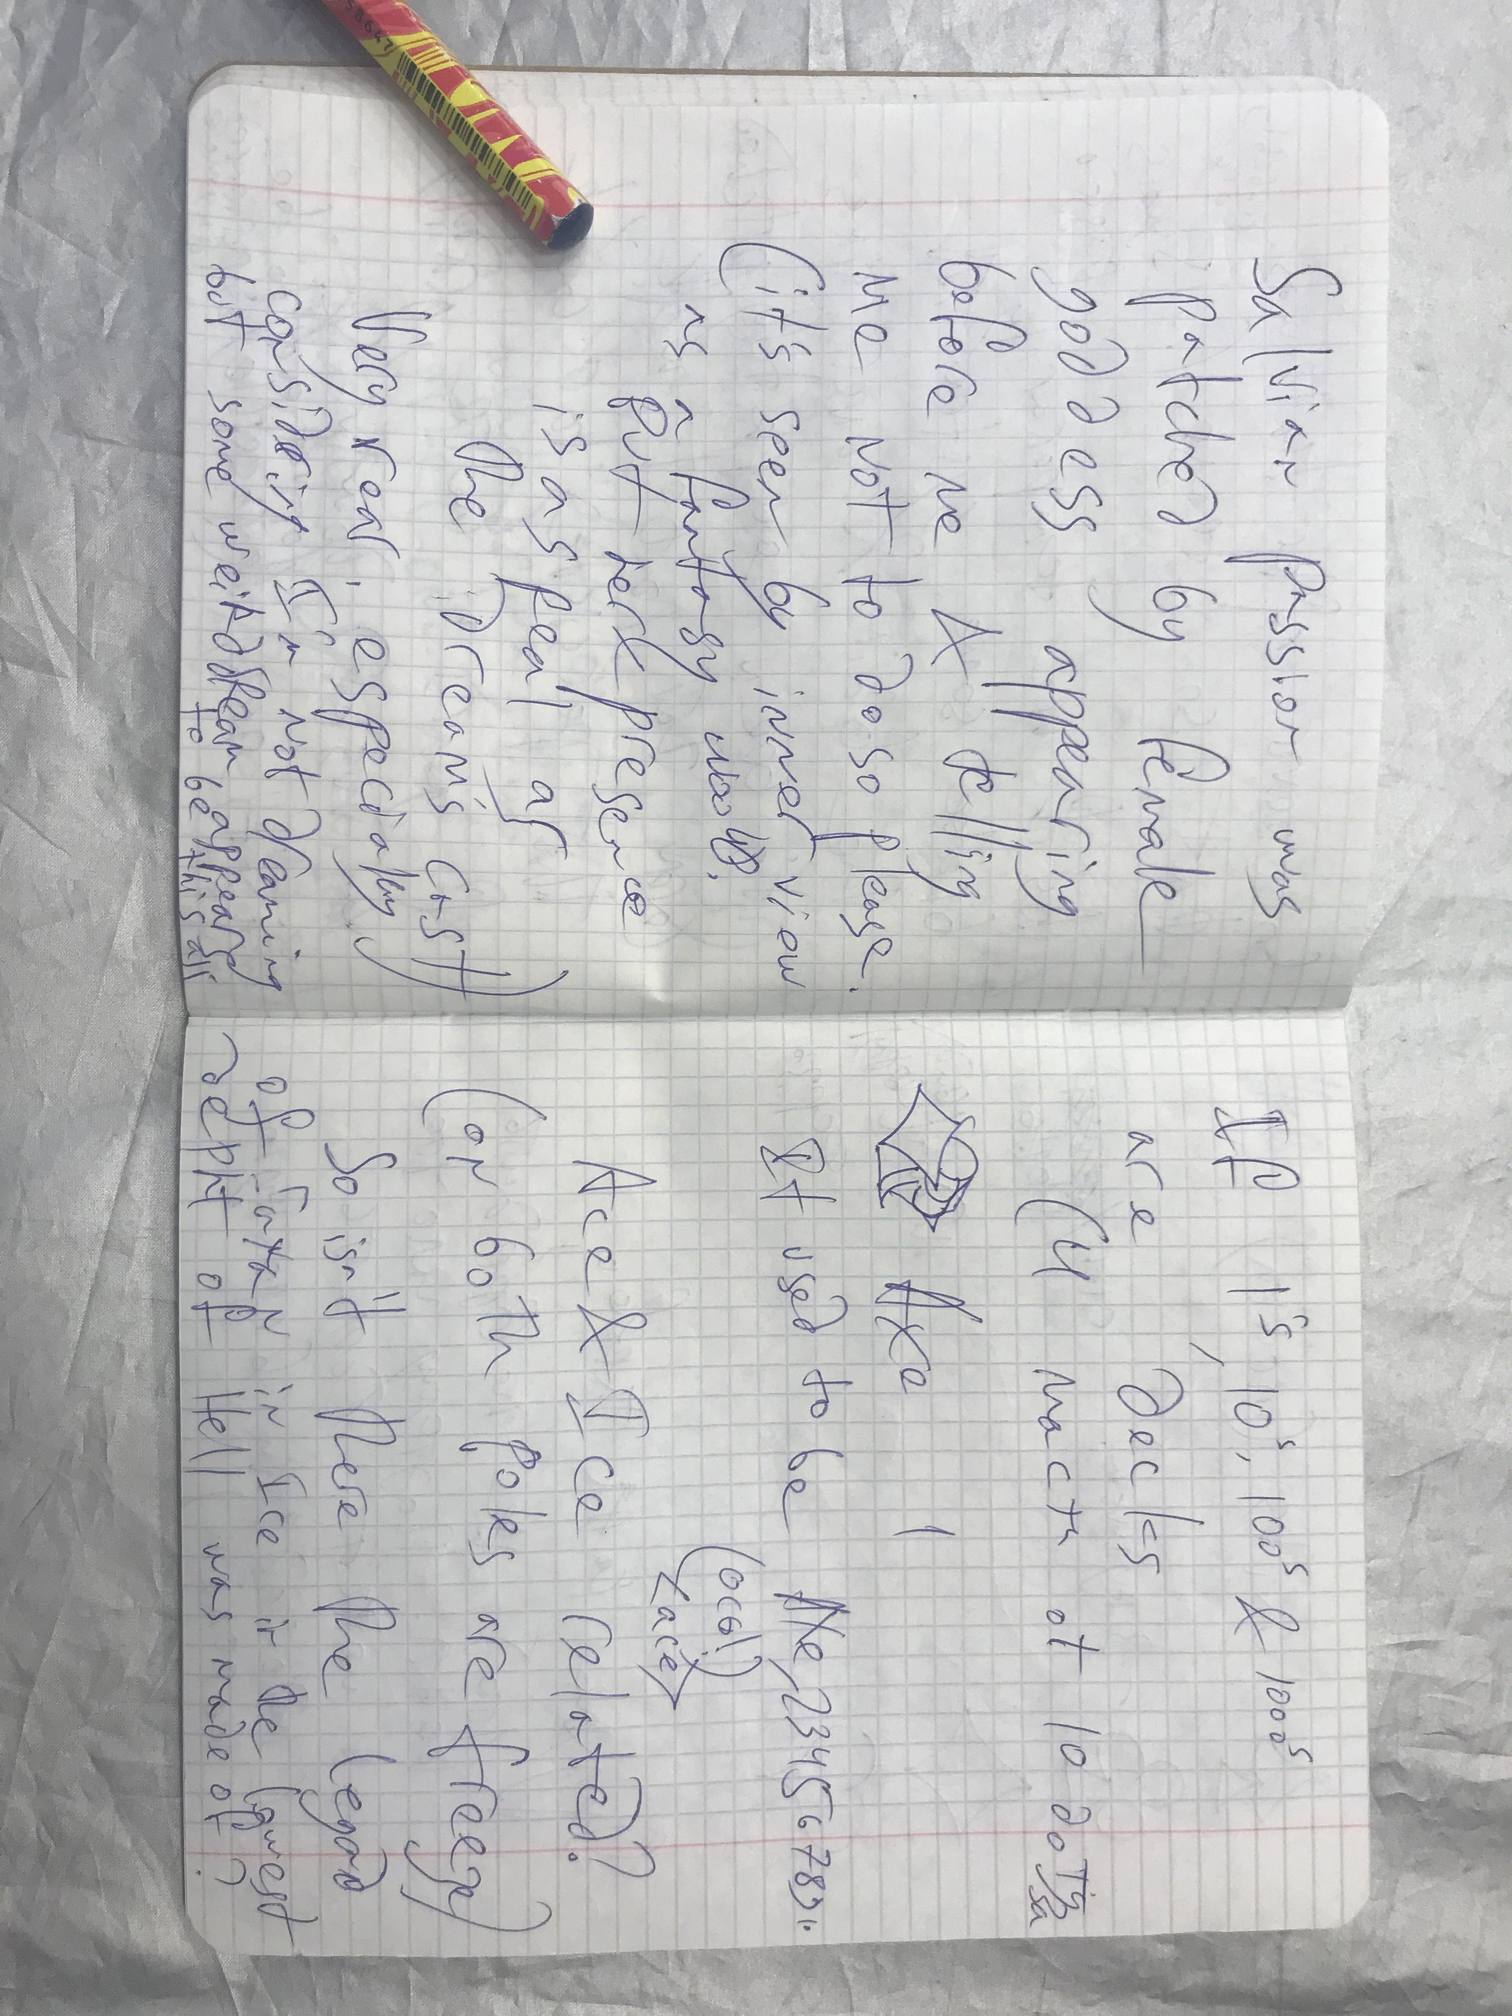 Salvian passion was
patched by female
goddess appearing
before me & telling
me not to do so please.
(it's seen by inner view
as a fantasy world.
But her presence
is as real as
the dream's cast)
Very real, especially
considering I'm not dreaming
but some weird dream appeared
to be this all
If 1's, 10s, 100s & 1000s
are decks
(4 масти от 10 до
Axe 1
It used to be Axe, 2345678
(осы)
Ace & Ice related?
(on both poles are freezy)
So isn't there the legend
of Satan in Ice in the lowest
depht of Hell was made of?
58647